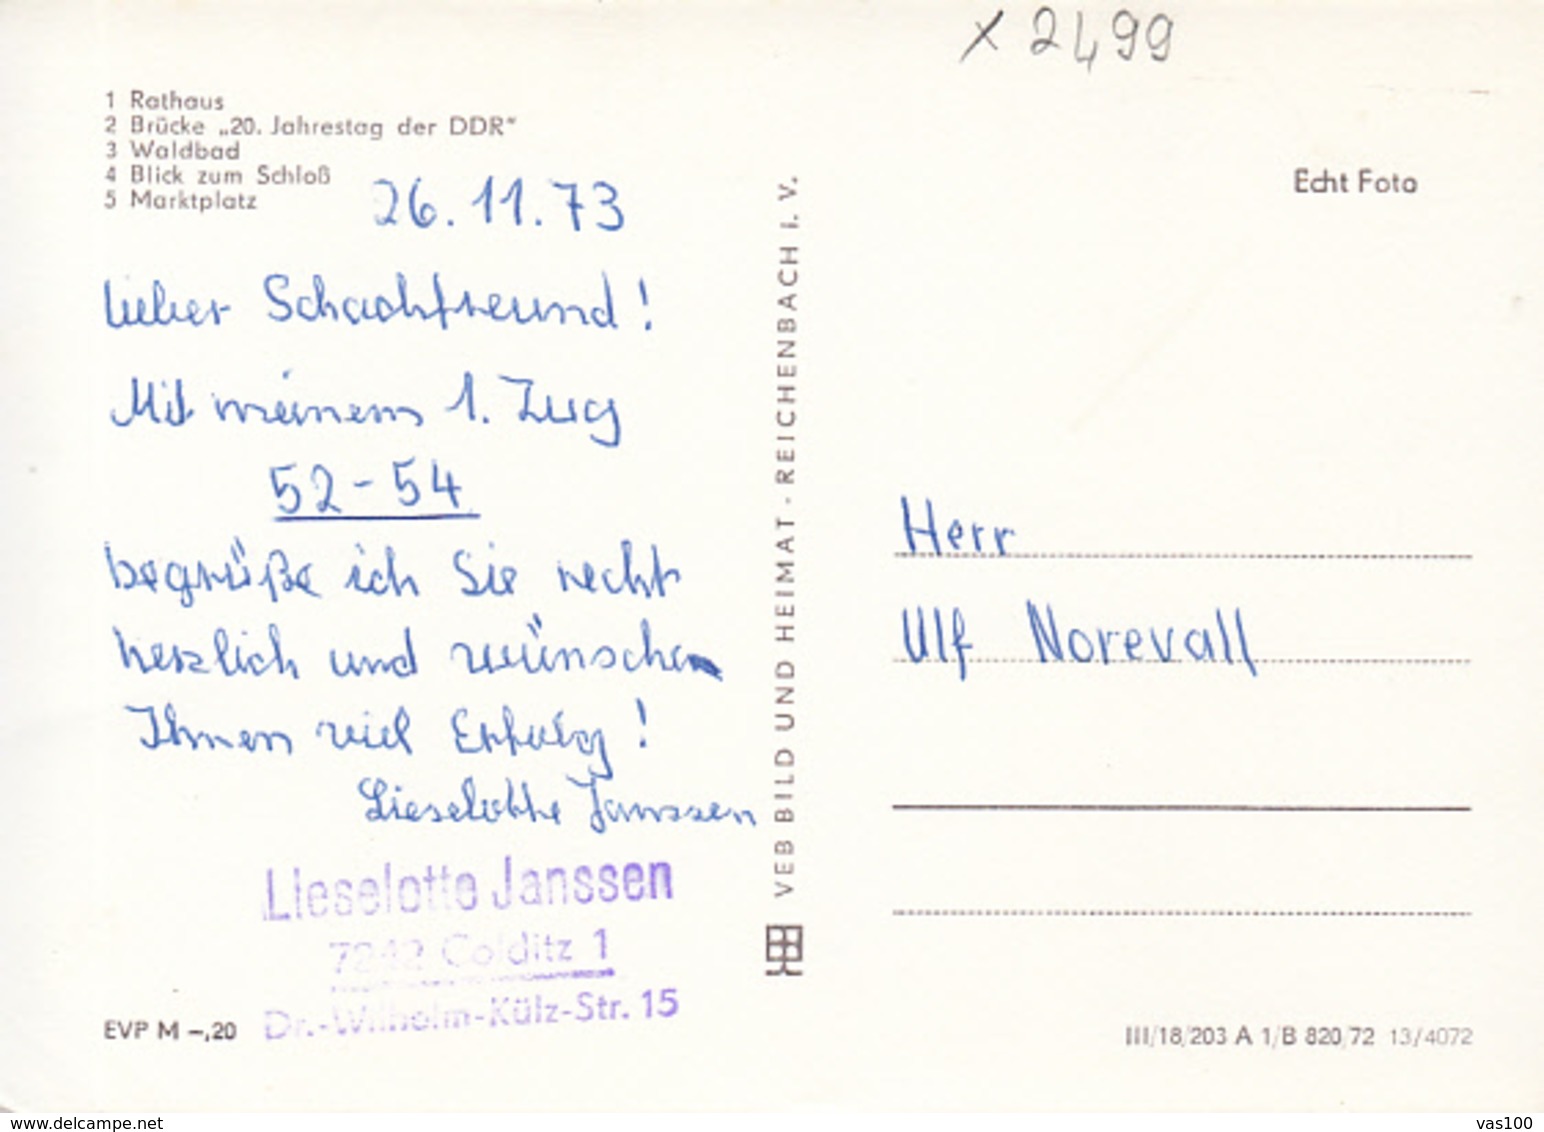 x 2499
1 Rathaus
2 Brücke „20. Jahrestag der DDR"
3 Waldbad
4 Blick zum Schloß
5 Marktplatz
26.11.73
Lieber Schachfreund!
Mit meinem 1. Zug
52-54
begrüße ich Sie recht
herzlich und wünsche
Ihnen viel Erfolg!
Lieselotte Janssen
Lieselotte Janssen
7242 Colditz 1
Dr.-Wilhelm-Külz-Str. 15
EVP M -,20
VEB BILD UND HEIMAT · REICHENBACH I. V.
Echt Foto
Herr
Ulf Norevall
III/18/203 A 1/B 820/72 13/4072
www.delcampe.net
vas100